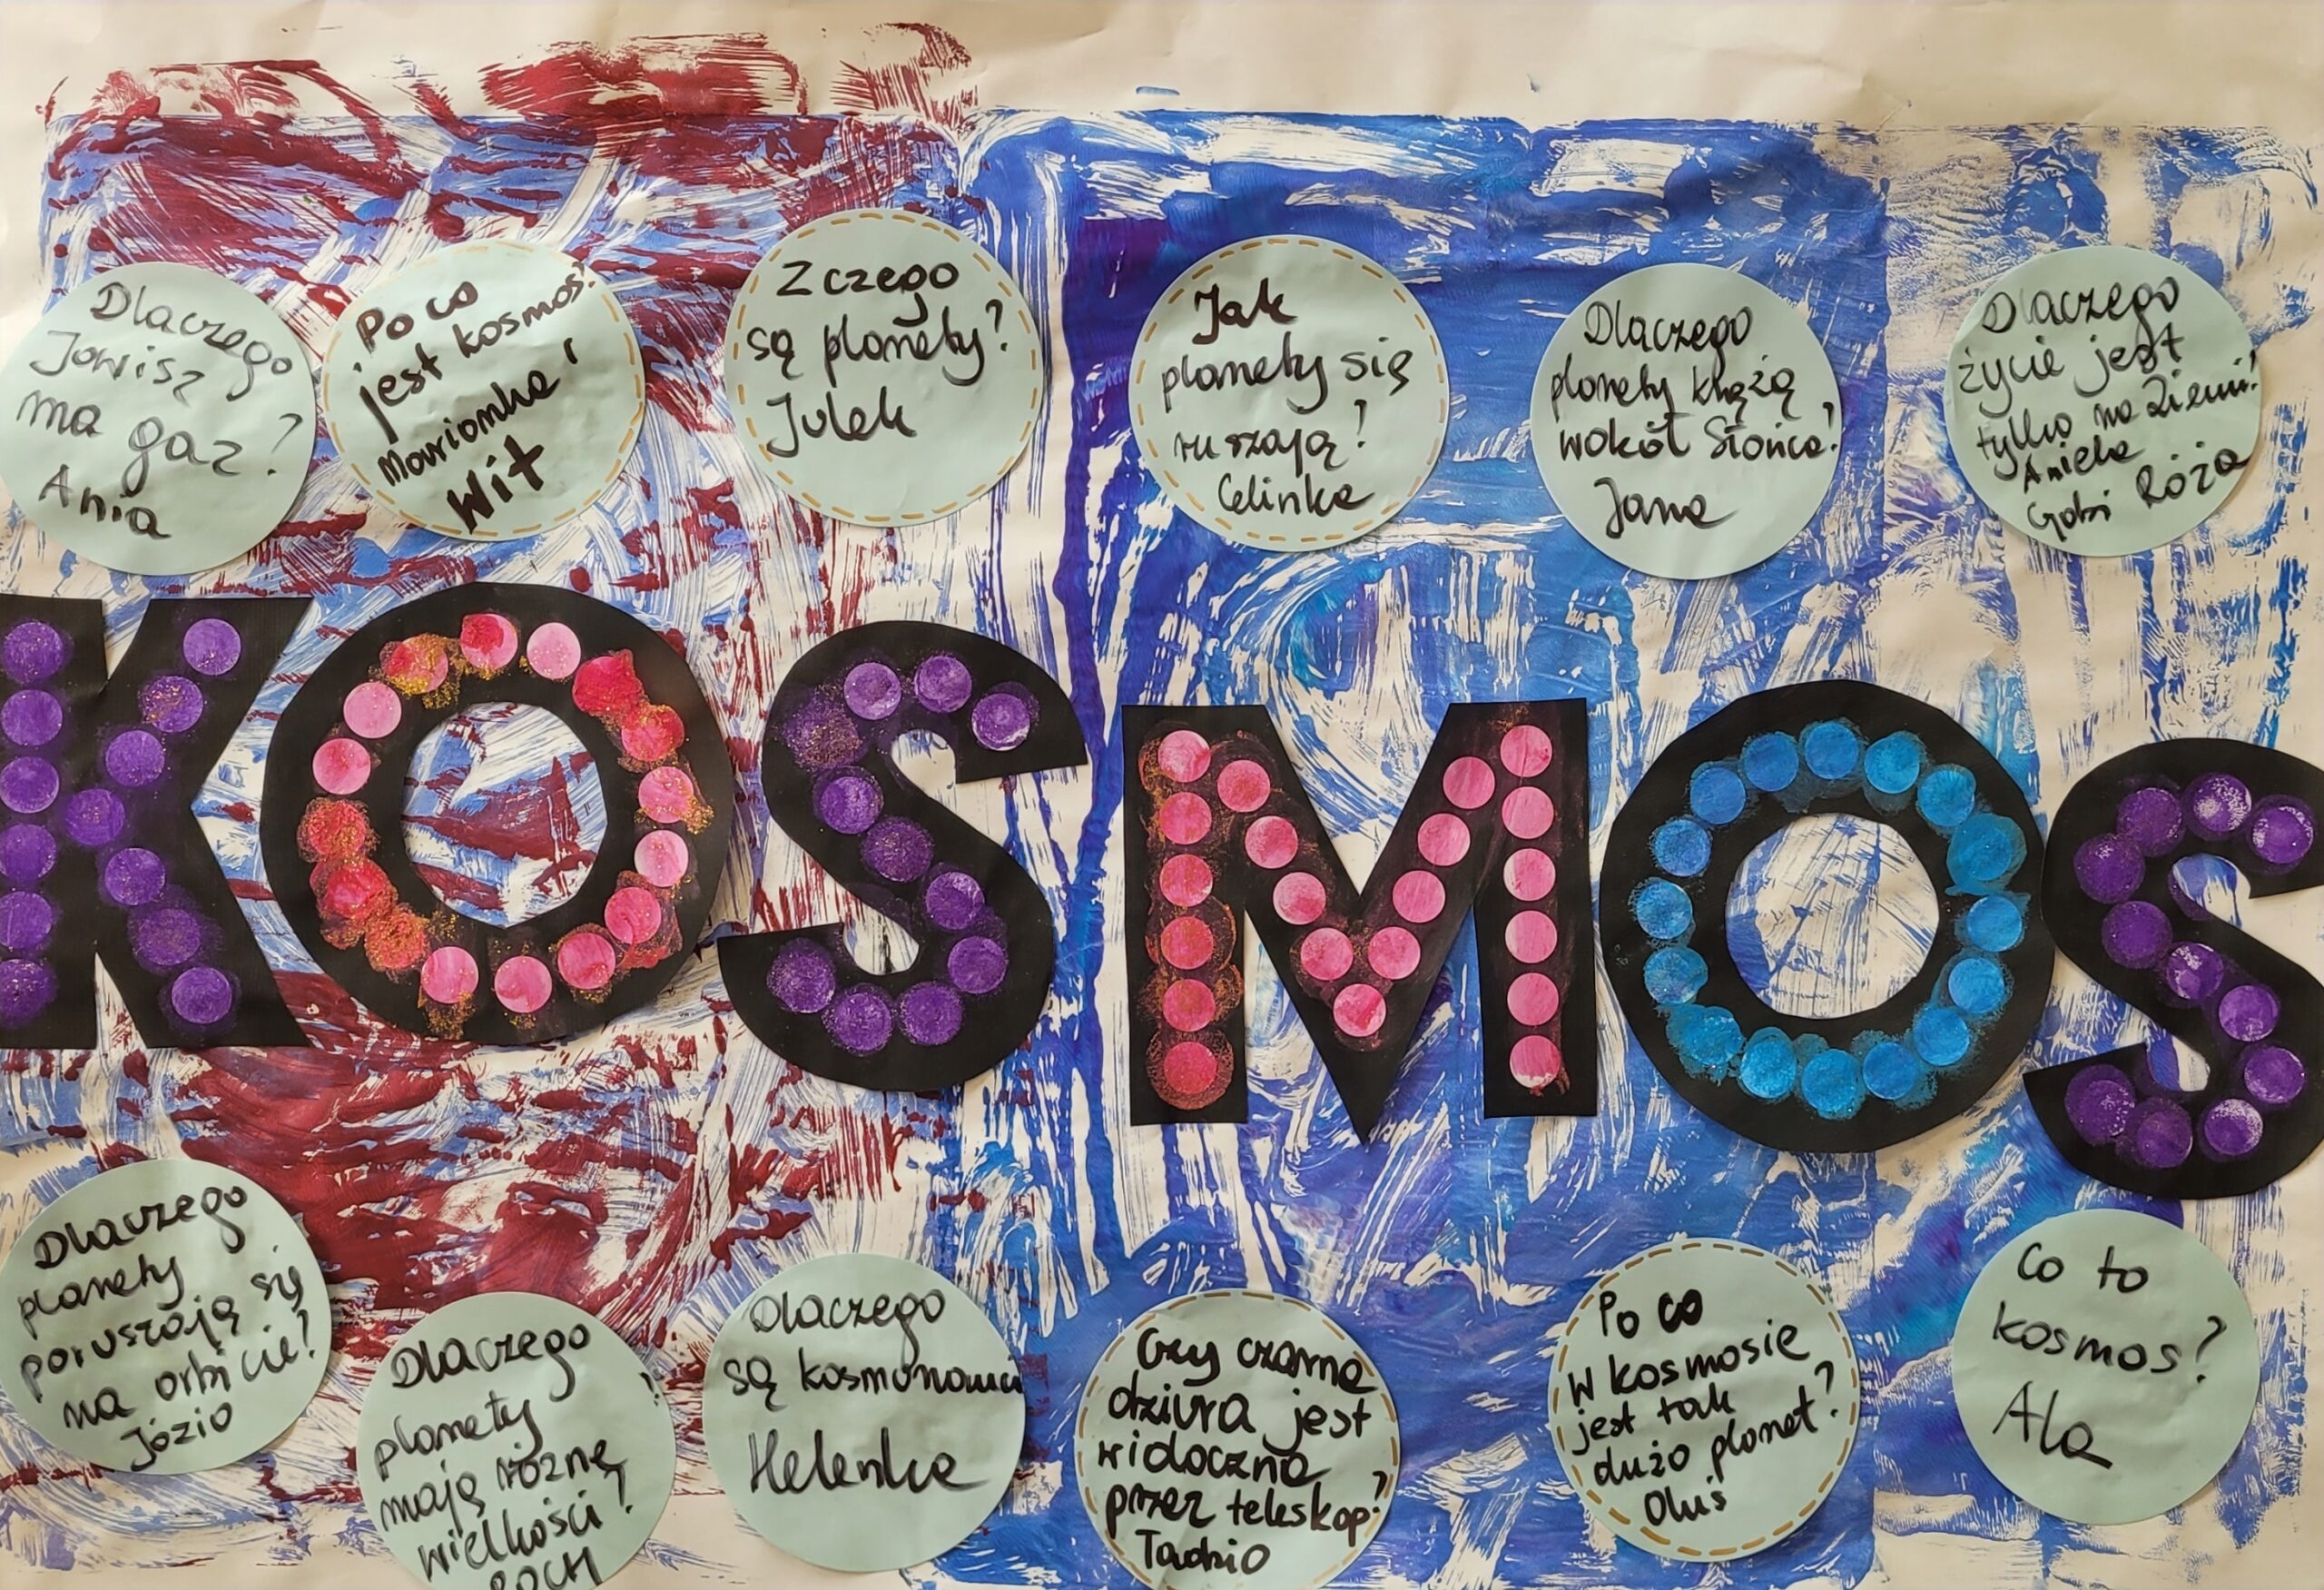 Dlaczego
Jowisz
ma gaz?
Ania
Po co
jest kosmos?
Marianka i
Wit
Z czego
są planety?
Julek
Jak
planety się
ruszają?
Celinka
Dlaczego
planety krążą
wokół Słońca?
Jana
Dlaczego
życie jest
tylko na Ziemi?
Anielka
Gabi Róża
KOSMOS
Dlaczego
planety
poruszają się
na orbicie?
Józio
Dlaczego
planety
mają różne
wielkości?
ROCH
Dlaczego
są kosmonauci?
Helenka
Czy czarna
dziura jest
widoczna
przez teleskop?
Tadzio
Po co
w kosmosie
jest tak
dużo planet?
Oluś
Co to
kosmos?
Ala